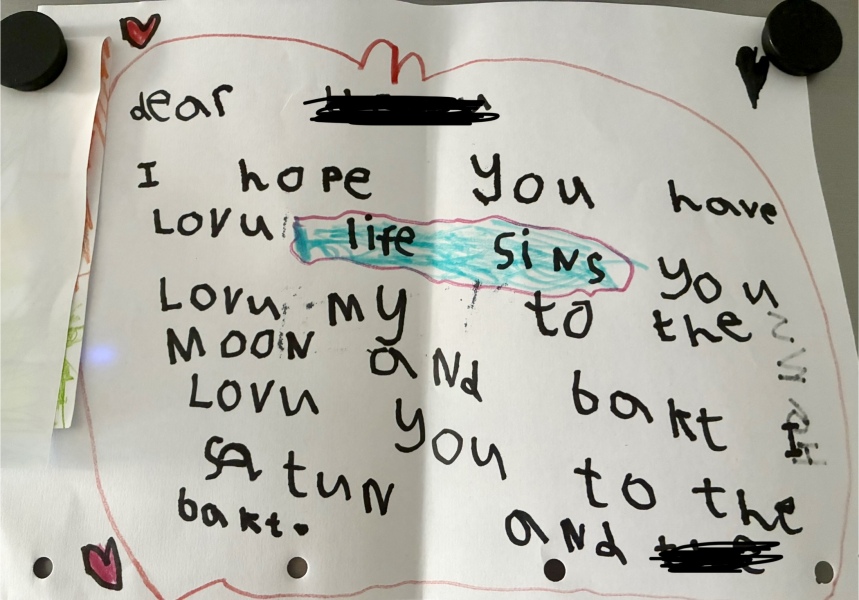 dear
I hope you have
Lovu life sins you
Lovu my to the
MOON and bakt I
Lovu you to the
Satun and
bakt.